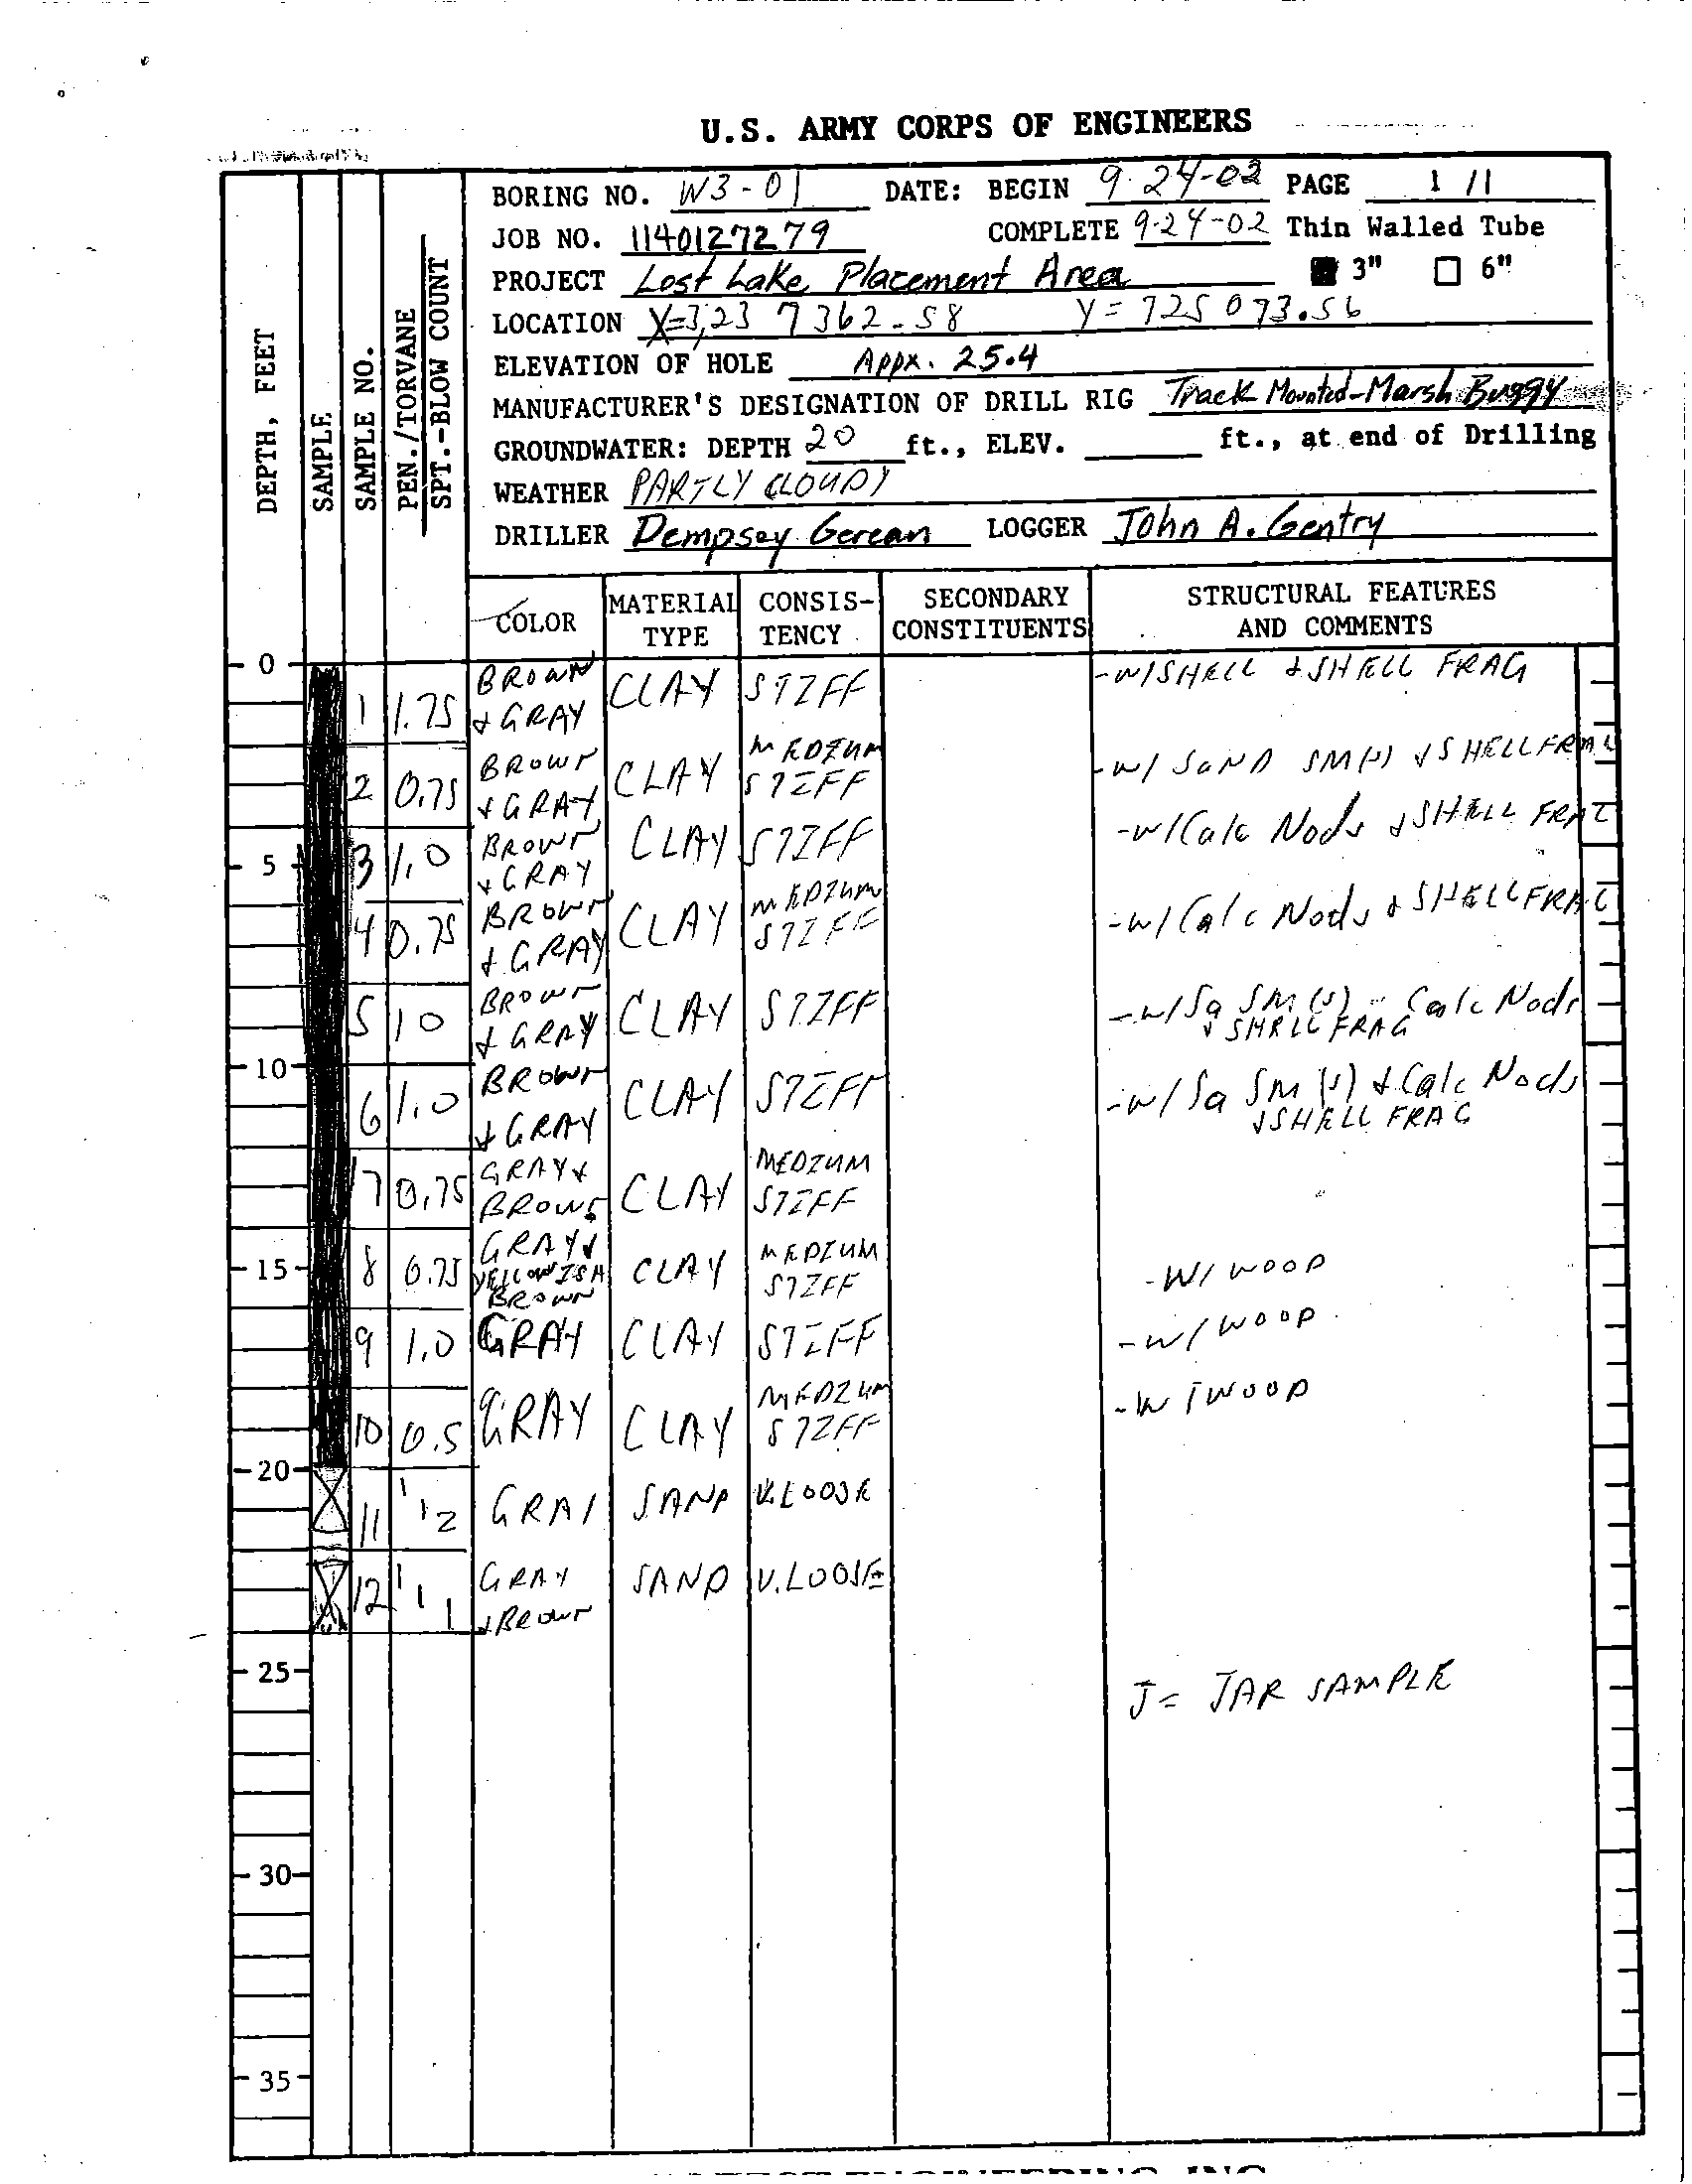 U.S. ARMY CORPS OF ENGINEERS
BORING NO. W3-01 DATE: BEGIN 9-24-02 PAGE 1/1
JOB NO. 1140127279 COMPLETE 9-24-02 Thin Walled Tube
PROJECT Lost Lake Placement Area 3" 6"
LOCATION X=3,237362.58 Y=725073.56
ELEVATION OF HOLE Appx. 25.4
MANUFACTURER'S DESIGNATION OF DRILL RIG Track Mounted-Marsh Buggy
GROUNDWATER: DEPTH 20 ft., ELEV. ft., at end of Drilling
WEATHER PARTLY CLOUDY
DRILLER Dempsey LOGGER John A. Gentry
DEPTH, FEET
SAMPLE
SAMPLE NO.
PEN./TORVANE
SPT.-BLOW COUNT
COLOR MATERIAL TYPE CONSIS-TENCY SECONDARY CONSTITUENTS STRUCTURAL FEATURES AND COMMENTS
0
1 1.75 BROWN & GRAY CLAY STIFF -W/SHELL & SHELL FRAG
2 0.75 BROWN & GRAY CLAY MEDIUM STIFF -W/ SAND SM(s) & SHELL FRAG
5
3 1.0 BROWN & GRAY CLAY STIFF -W/Calc Nods & SHELL FRAG
4 0.75 BROWN & GRAY CLAY MEDIUM STIFF -W/Calc Nods & SHELL FRAG
5 10 BROWN & GRAY CLAY STIFF -W/Sa SM(s) Calc Nods & SHELL FRAG
10
6 1.0 BROWN & GRAY CLAY STIFF -W/Sa SM(s) & Calc Nods & SHELL FRAG
7 0.75 GRAY & BROWN CLAY MEDIUM STIFF
15
8 0.75 GRAY & YELLOWISH BROWN CLAY MEDIUM STIFF -W/WOOD
9 1.0 GRAY CLAY STIFF -W/WOOD
10 0.5 GRAY CLAY MEDIUM STIFF -W/WOOD
20
11 1 1 2 GRAY SAND V.LOOSE
12 1 1 1 GRAY & BROWN SAND V.LOOSE
25
J= JAR SAMPLE
30
35